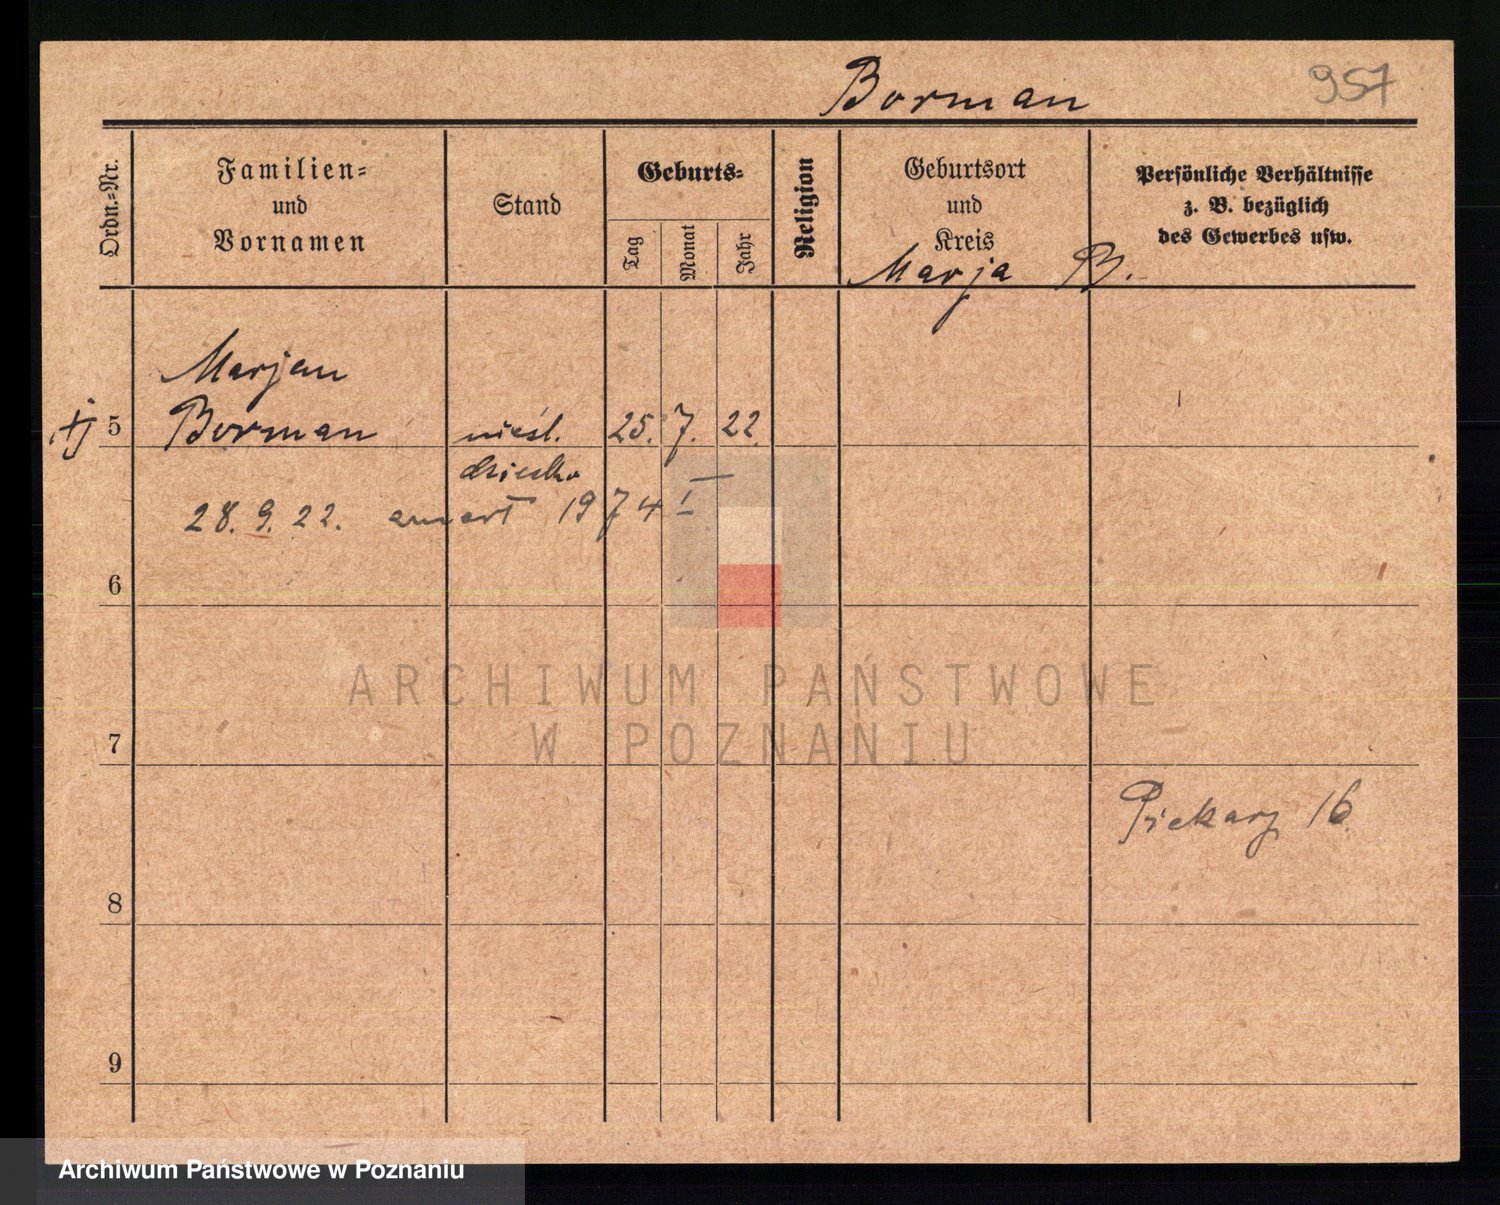 Borman
957
Ordn.-Nr.
Familien-
und
Vornamen
Stand
Geburts-
Tag
Monat
Jahr
Religion
Geburtsort
und
Kreis
Persönliche Verhältnisse
z. B. bezüglich
des Gewerbes usw.
Marja B.
Marjan
5 Borman nieśl. 25. 7. 22.
dziecko
28. 9. 22. zmarł 1974 I
6
ARCHIWUM PAŃSTWOWE
W POZNANIU
7
Piekary 16
8
9
Archiwum Państwowe w Poznaniu